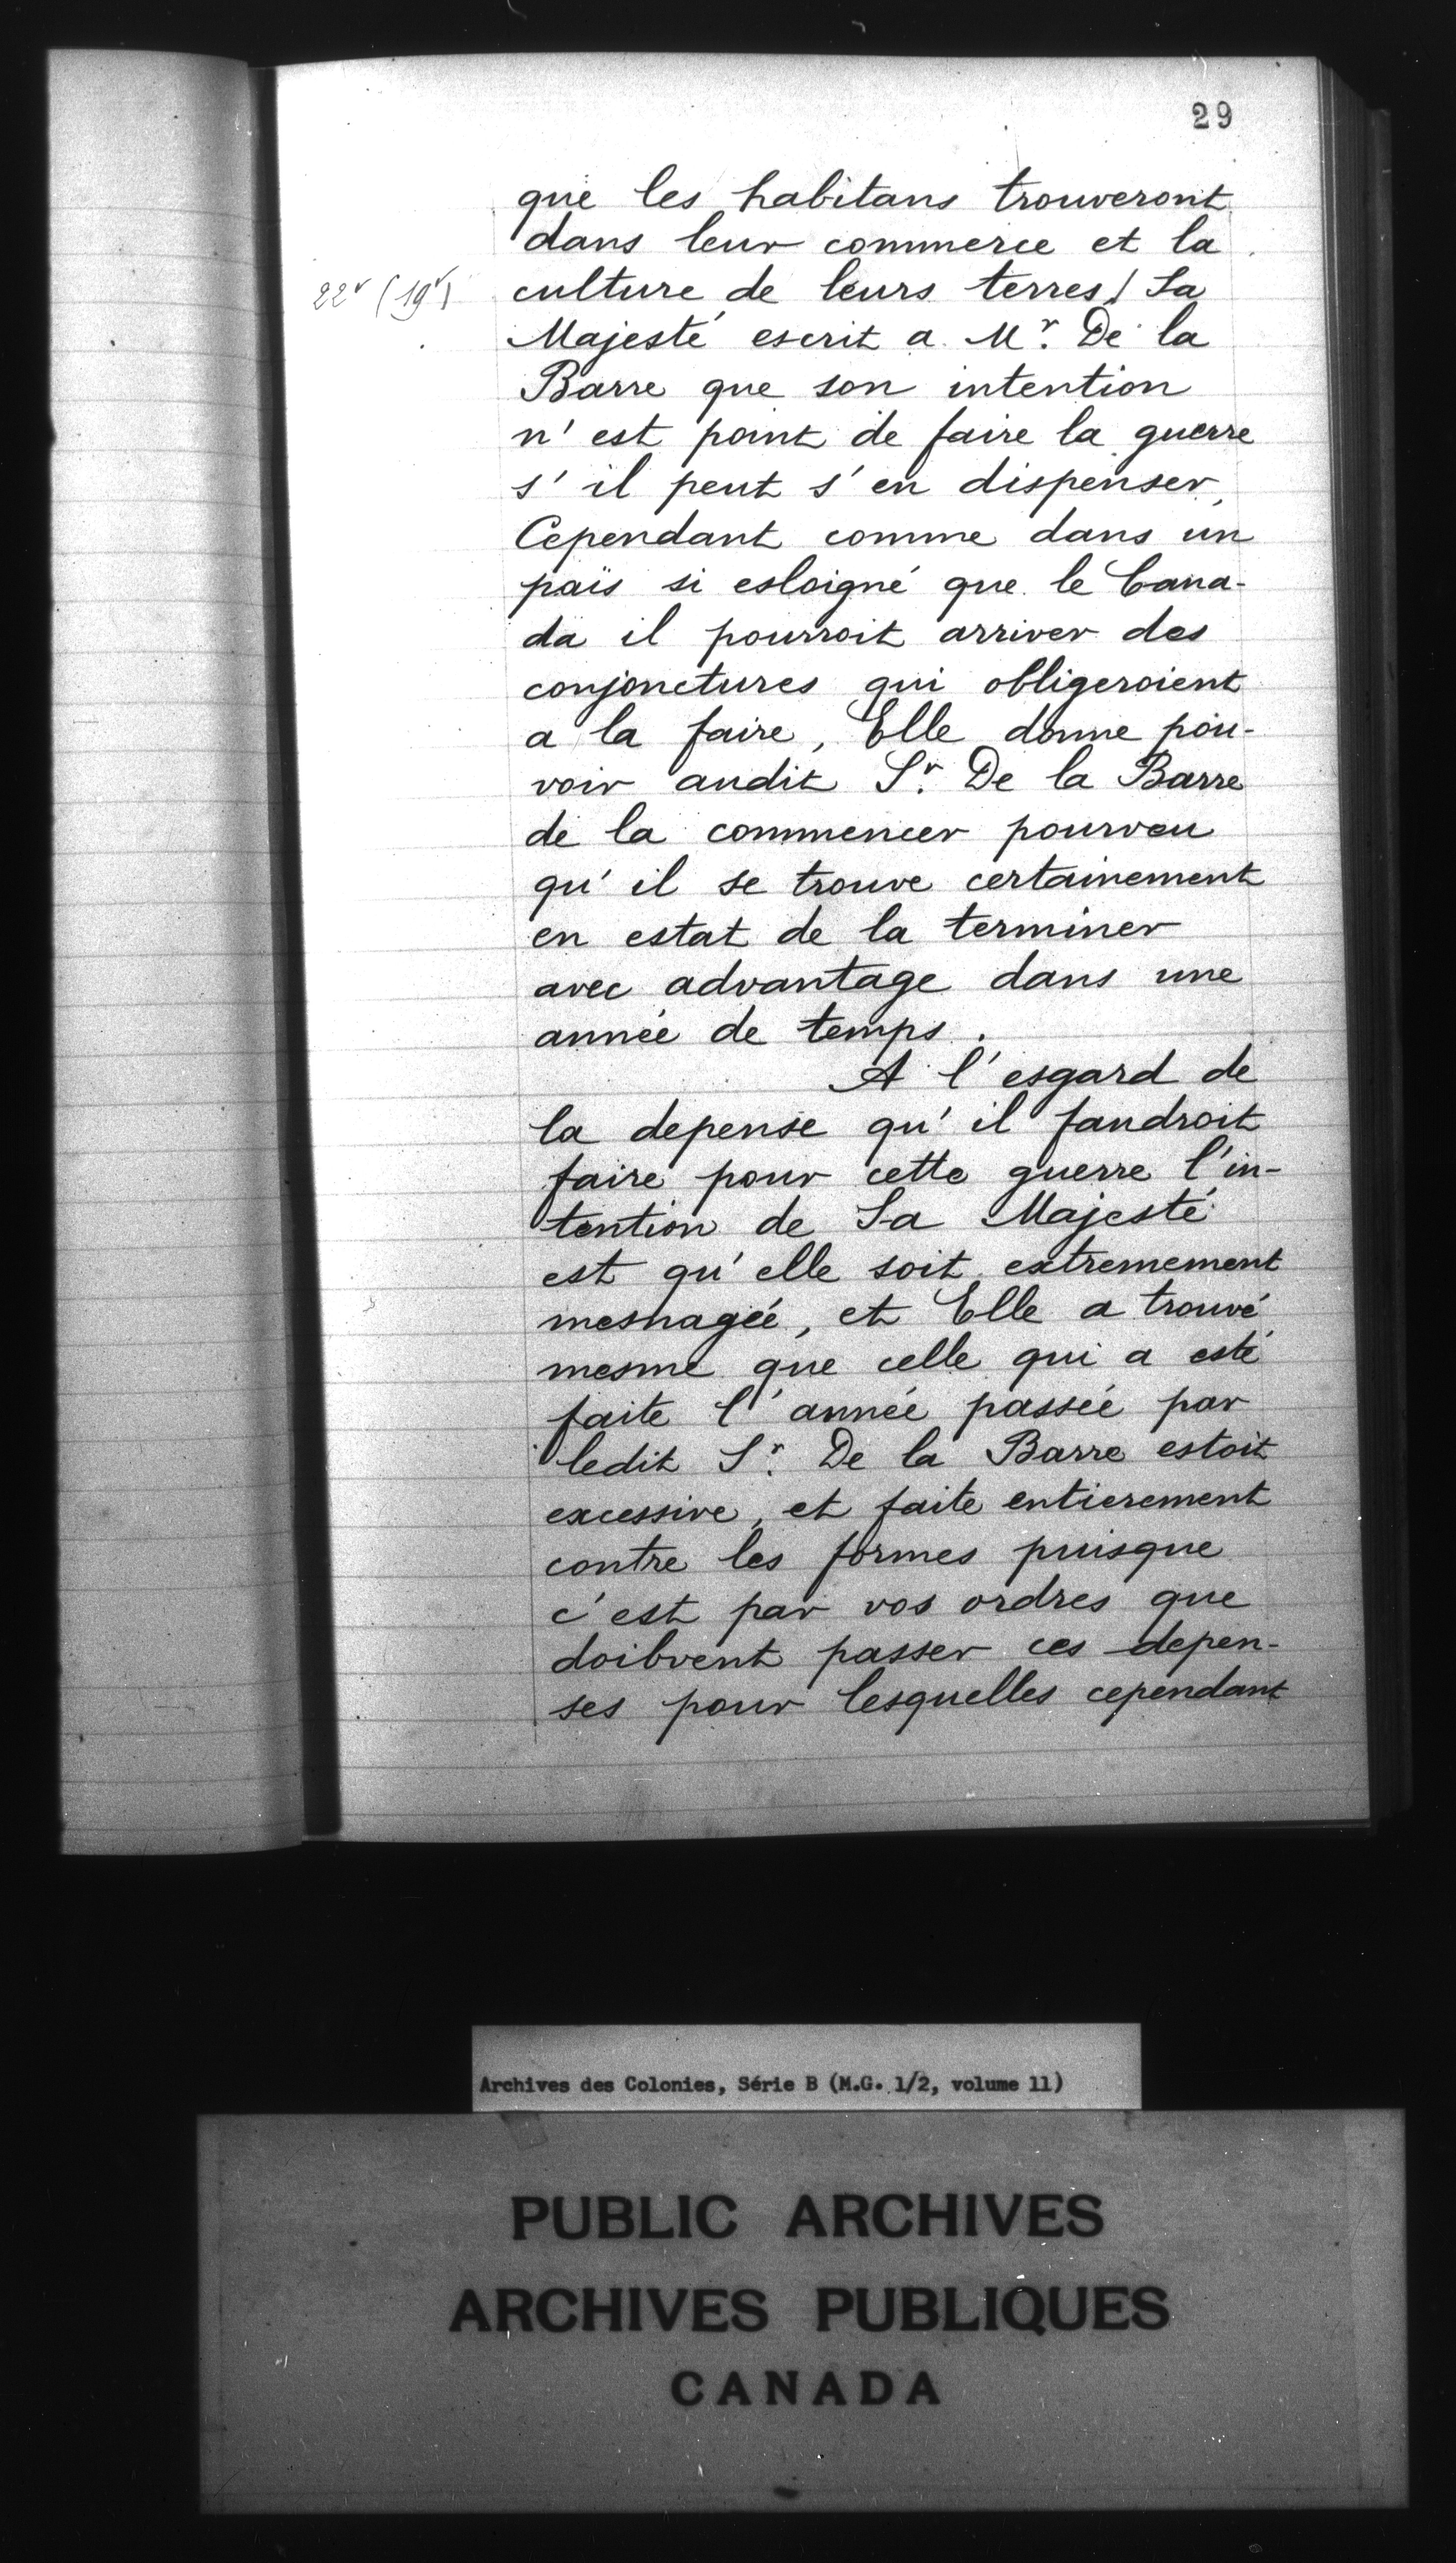 29
que les habitans trouveront
dans leur commerce et la
22v (19v) culture de leurs terres / Sa
Majesté escrit a Mr. De la
Barre que son intention
n'est point de faire la guerre
s'il peut s'en dispenser,
Cependant comme dans un
païs si esloigné que le Cana-
da il pourroit arriver des
conjonctures qui obligeroient
a la faire, Elle donne pou-
voir audit Sr. De la Barre
de la commencer pourveu
qu'il se trouve certainement
en estat de la terminer
avec advantage dans une
année de temps.
A l'esgard de
la depense qu'il faudroit
faire pour cette guerre l'in-
tention de Sa Majesté
est qu'elle soit extremement
mesnagée, et Elle a trouvé
mesme que celle qui a esté
faite l'année passée par
ledit Sr. De la Barre estoit
excessive, et faite entierement
contre les formes puisque
c'est par vos ordres que
doibvent passer ces depen-
ses pour lesquelles cependant
Archives des Colonies, Série B (M.G. 1/2, volume 11)
PUBLIC ARCHIVES
ARCHIVES PUBLIQUES
CANADA